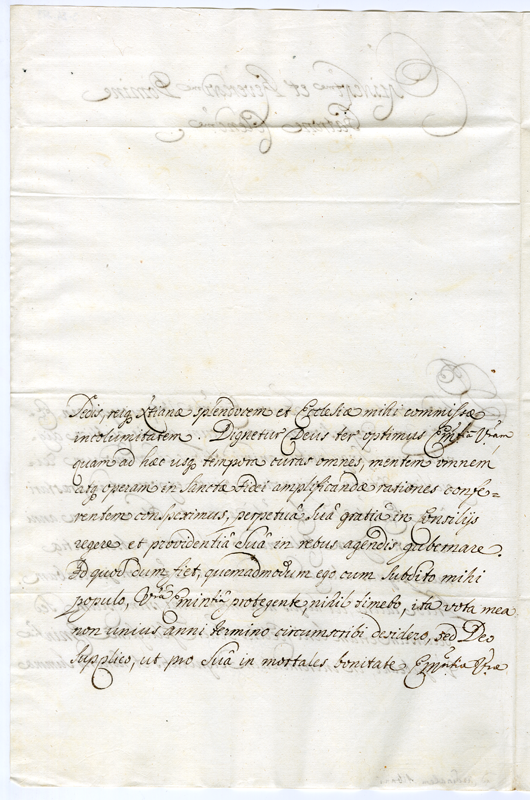 Sedis, reiq₃ Xtianæ splendorem et Ecclesiæ mihi commissæ
incolumitatem. Dignetur Deus ter optimus Emĩntia Vr̃am
quam ad hæc usq₃ tempora curas omnes, mentem omnem
atq₃ operam in Sanctæ Fidei amplificandæ rationes confe-
rentem conspeximus, perpetuâ suâ gratiâ in Consilijs
regere et providentiâ Suâ in rebus agendis gubernare.
Id quod dum fiet, quemadmodum ego cum Subdito mihi
populo, Vr̃a Emintiâ protegente, nihil timebo, ita vota mea
non unius anni termino circumscribi desidero, sed Deo
supplico, ut pro Suâ in mortales bonitate Emĩntia Vr̃æ